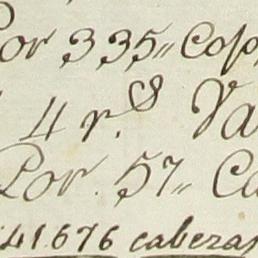 Por 335,, Cop
4 r.s Va
Por. 57,, Ca
41676 cabezas